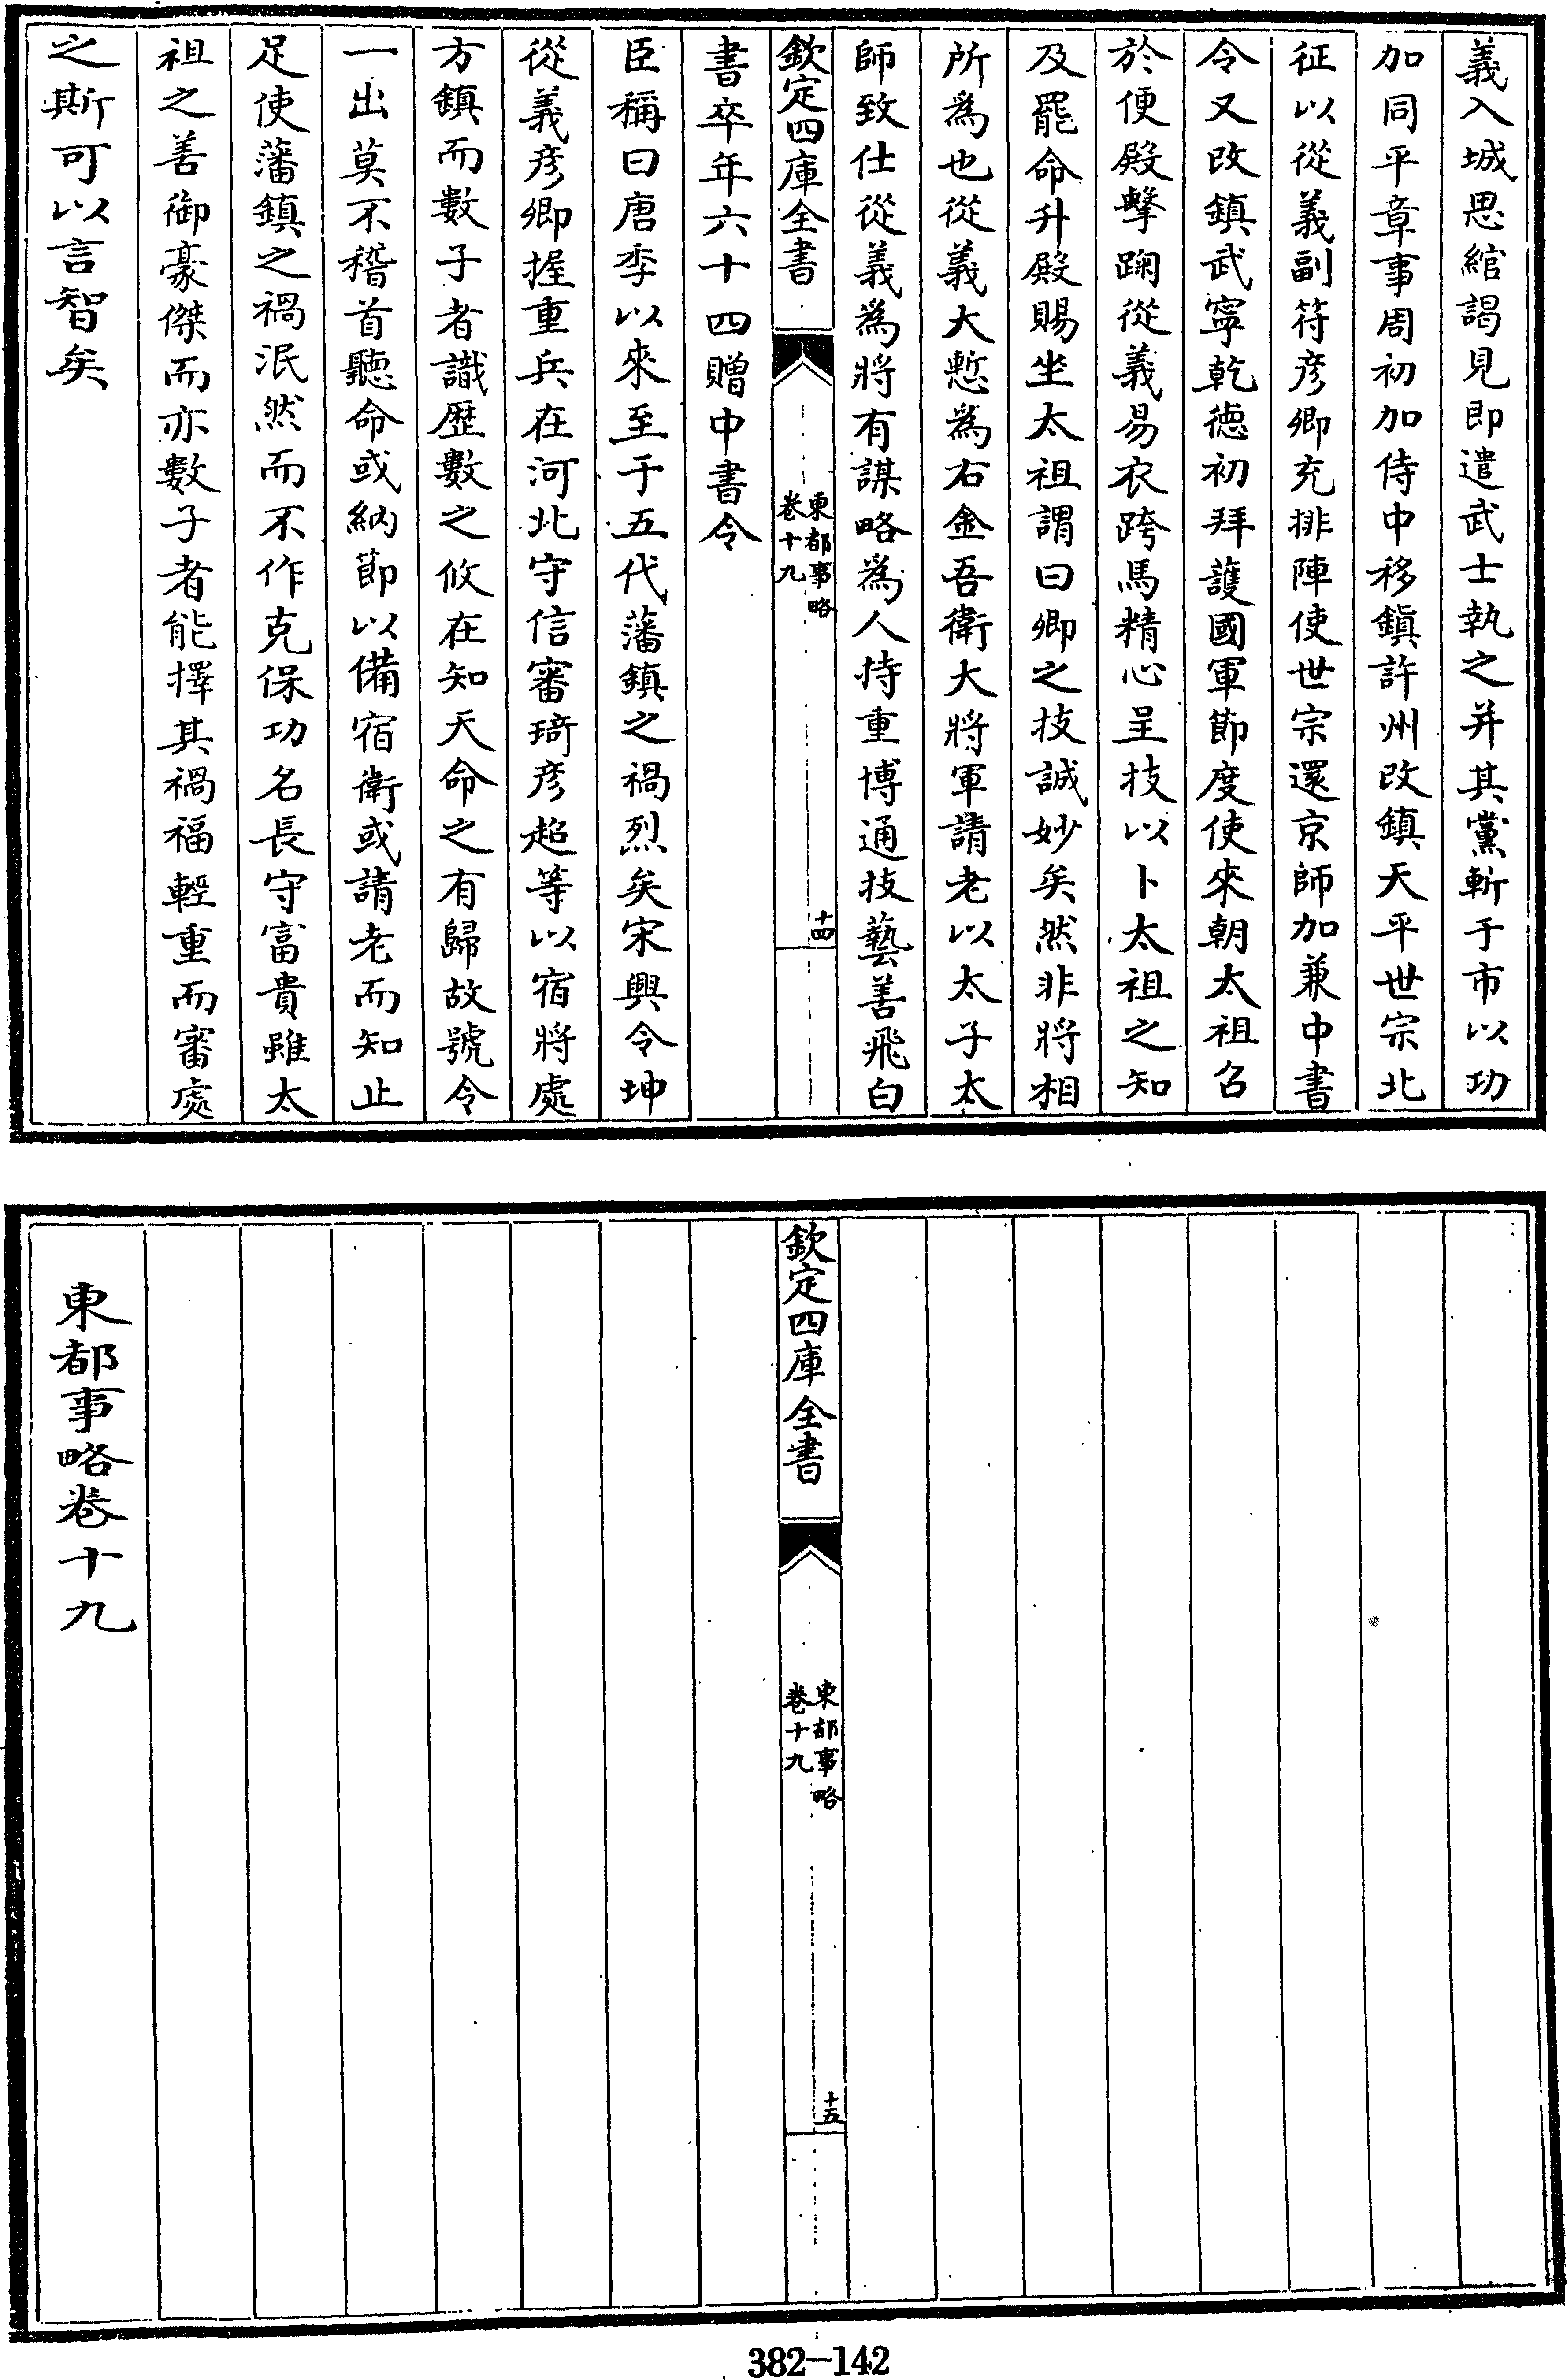 義入城思綰謁見即遣武士執之并其黨斬于市以功
加同平章事周初加侍中移鎮許州改鎮天平世宗北
征以從義副符彥卿充排陣使世宗還京師加兼中書
令又改鎮武寧乾德初拜護國軍節度使來朝太祖召
於便殿擊踘從義易衣跨馬精心呈技以卜太祖之知
及罷命升殿賜坐太祖謂曰卿之技誠妙矣然非將相
所為也從義大慙為右金吾衛大將軍請老以太子太
師致仕從義為將有謀略為人持重博通技藝善飛白
欽定四庫全書
東都事略
卷十九
十四
書卒年六十四贈中書令
臣稱曰唐季以來至于五代藩鎮之禍烈矣宋興令坤
從義彥卿握重兵在河北守信審琦彥超等以宿將處
方鎮而數子者識歷數之攸在知天命之有歸故號令
一出莫不稽首聽命或納節以備宿衛或請老而知止
足使藩鎮之禍泯然而不作克保功名長守富貴雖太
祖之善御豪傑而亦數子者能擇其禍福輕重而審處
之斯可以言智矣
欽定四庫全書
東都事略
卷十九
十五
東都事略卷十九
382-142